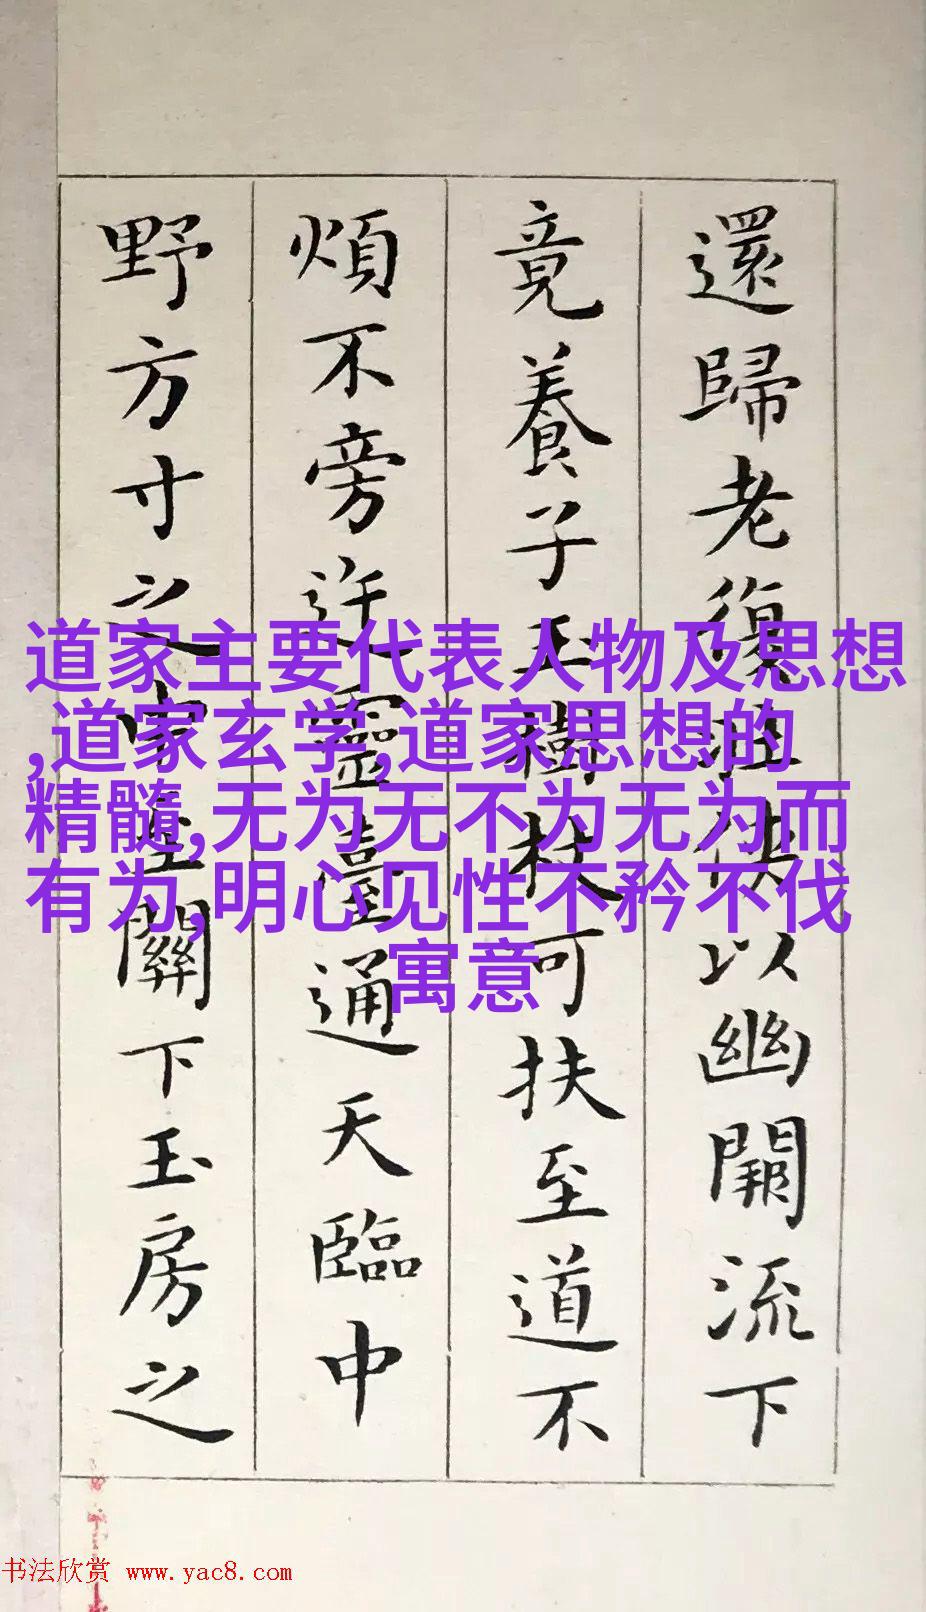 還歸老復壯俠以幽闕流下
竟養子玉樹杖可扶至道不
煩不旁迕靈臺通天臨中
野方寸之中至關下玉房之
道家主要代表人物及思想
,道家玄学,道家思想的
精髓,无为无不为无为而
有为,明心见性不矜不伐
寓意
书法欣赏 www.yac8.com